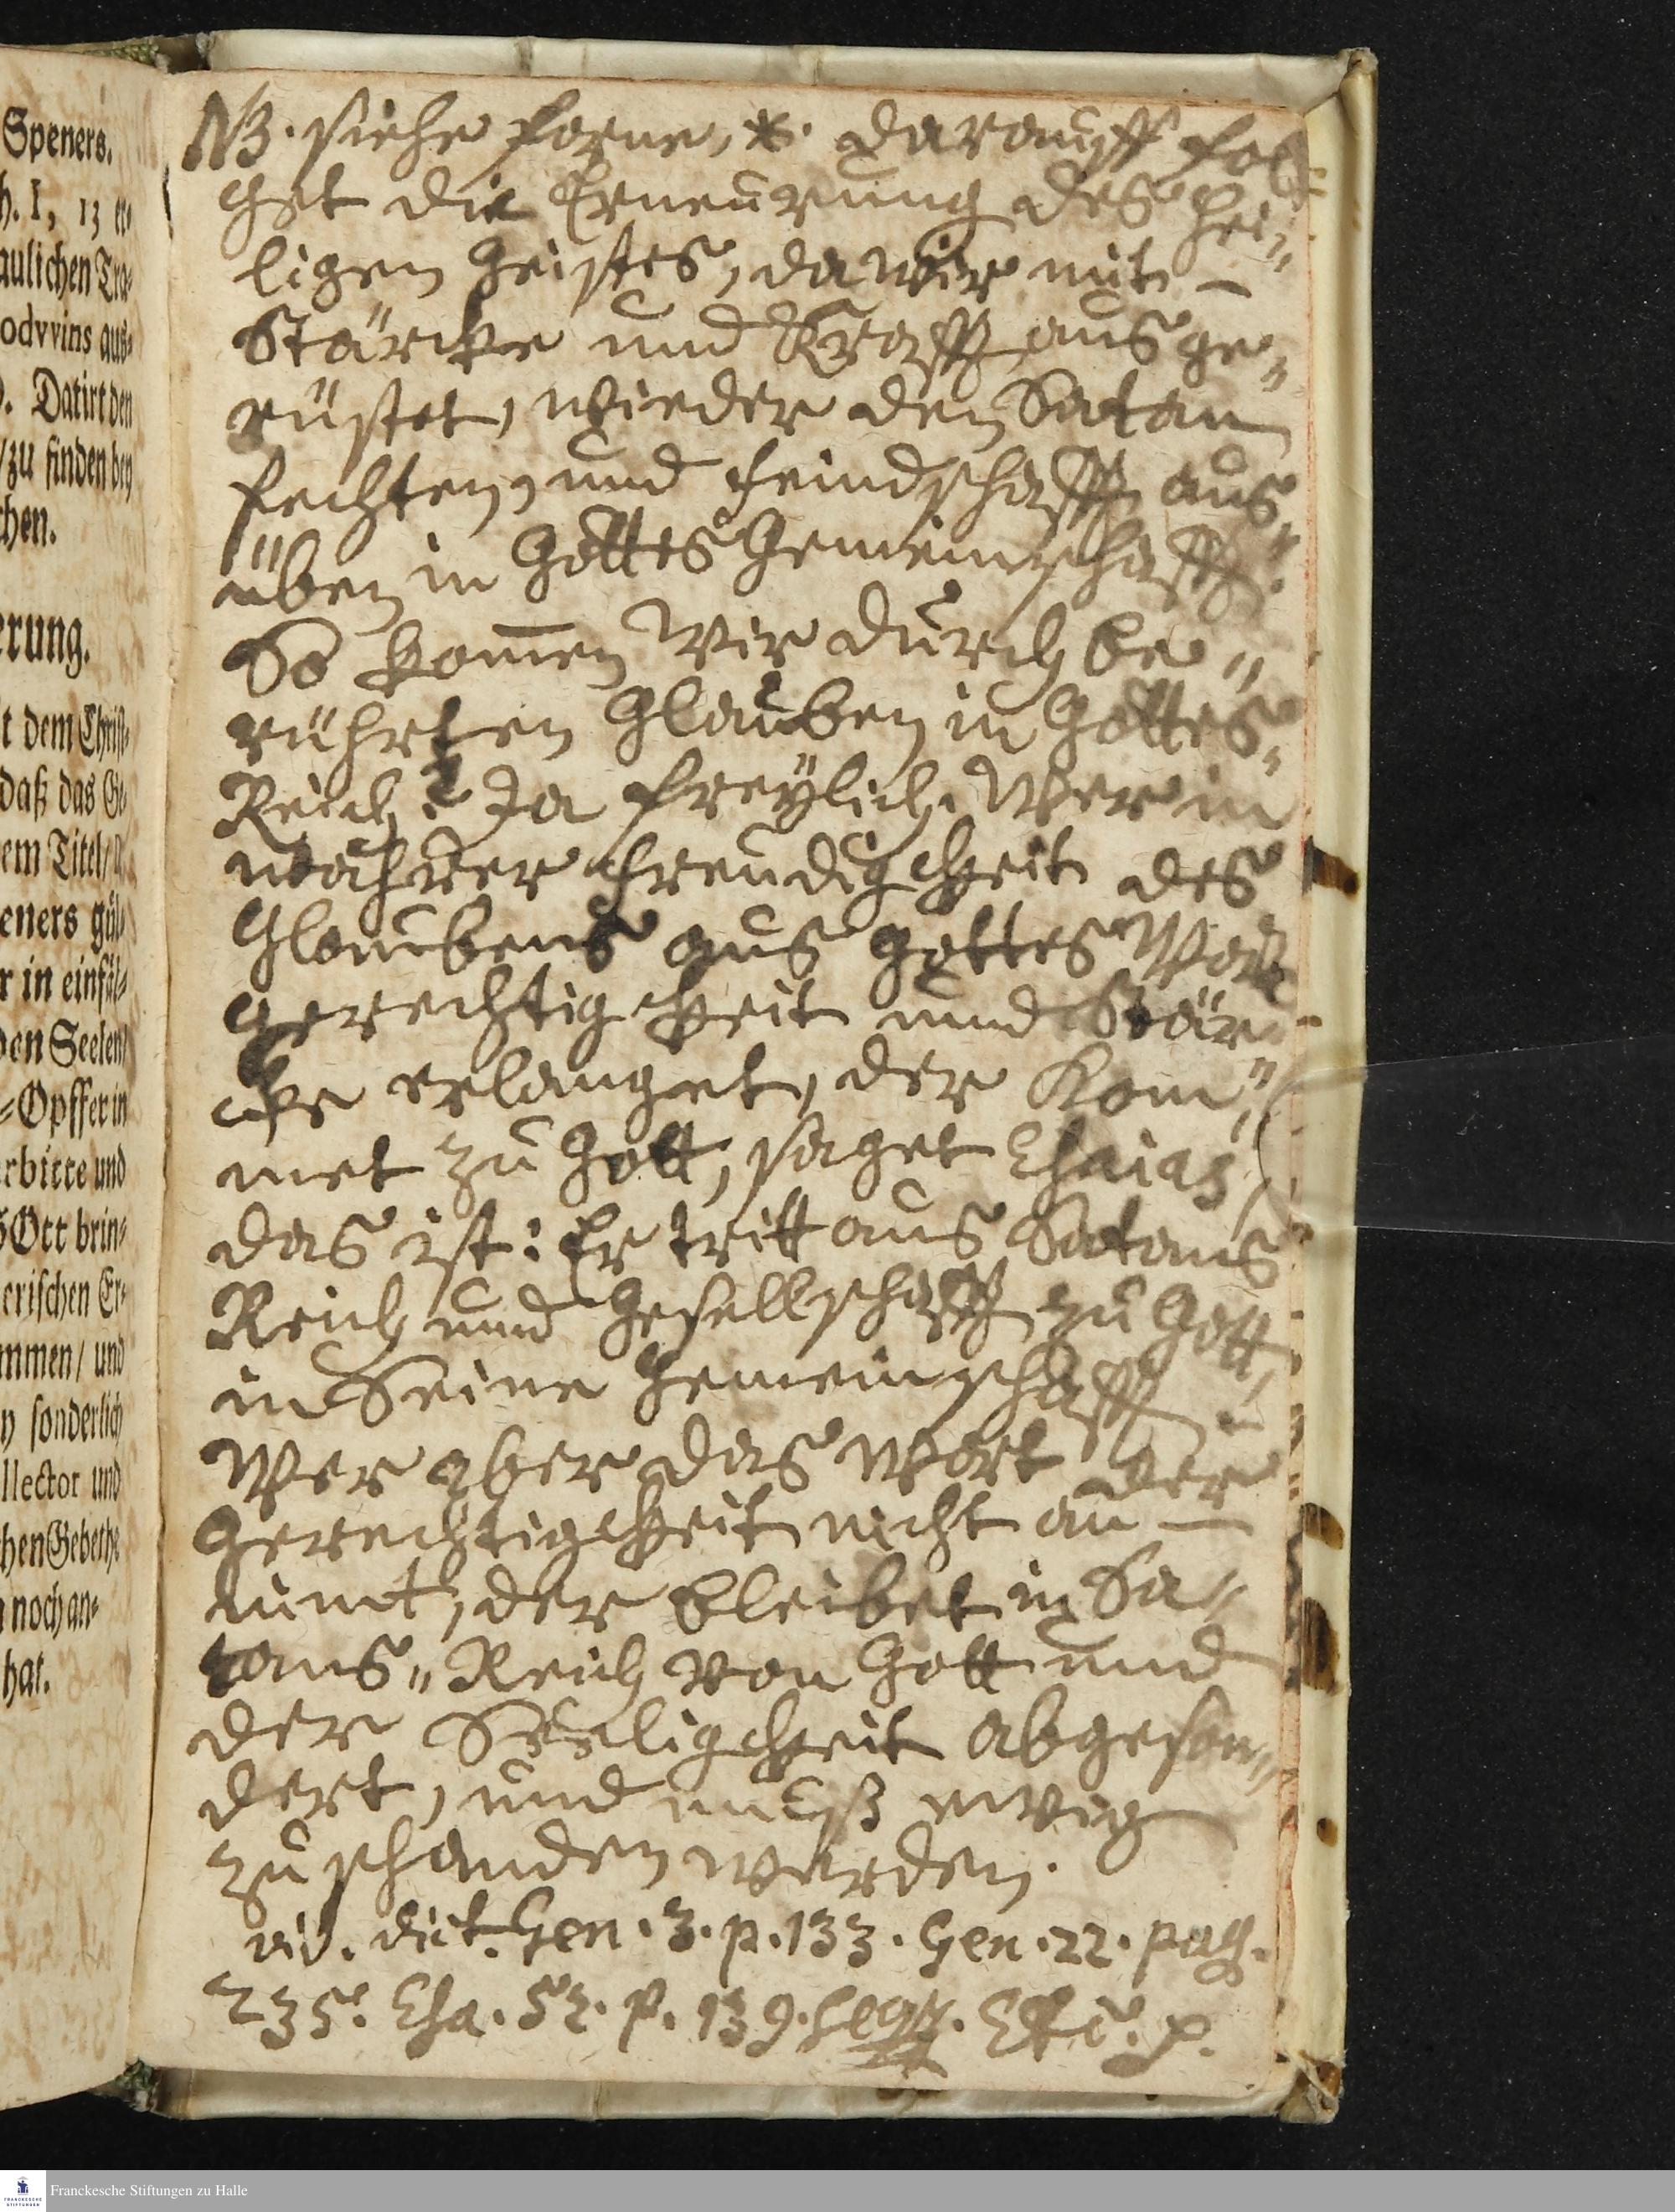 Speners.
h. I, 13
aulichen Tra-
odvvins aus-
). Datirt den
/zu finden bey
chen.
erung.
t dem Christ-
daß das Ge-
em Titel/
eners gül-
r in einfäl-
den Seelen/
-Opffer in
rbitte und
GOtt brin-
erischen Er-
mmen/ und
n sonderlich
llector und
chen Gebethe
noch an-
hat.
NB. siehe forne, *. darauff fol
get die Erneurung des Hei„
ligen Geistes, da wir mit –
Stärcke und Krafft ausge„
rüstet, wieder den Satan
fechten, und feindschafft aus„
üben in Gottes Gemeinschafft.
So kom̄en wir durch be„
rührten Glauben in Gottes„
Reich? Ja freylich. Wer in
wahrer freudigkeit des
Glaubens aus Gottes Wort
gerechtigkeit und Stär
cke erlanget, der Kom„
met zu Gott, saget Esaias,
das ist: Er tritt aus Satans
Reich und Gesellschafft zu Gott,
in Seine Gemeinschafft.
Wer aber das Wort der
Gerechtigkeit nicht an –
nimt, der bleibet in Sa„
tans„Reich von Gott und
der Seeligkeit abgeson„
dert, und muß ewig
zu schanden werden.
vid. dict. Gen. 3. p. 133. Gen. 22. pag.
235. Esa. 52. p. 139. seqq.
Franckesche Stiftungen zu Halle